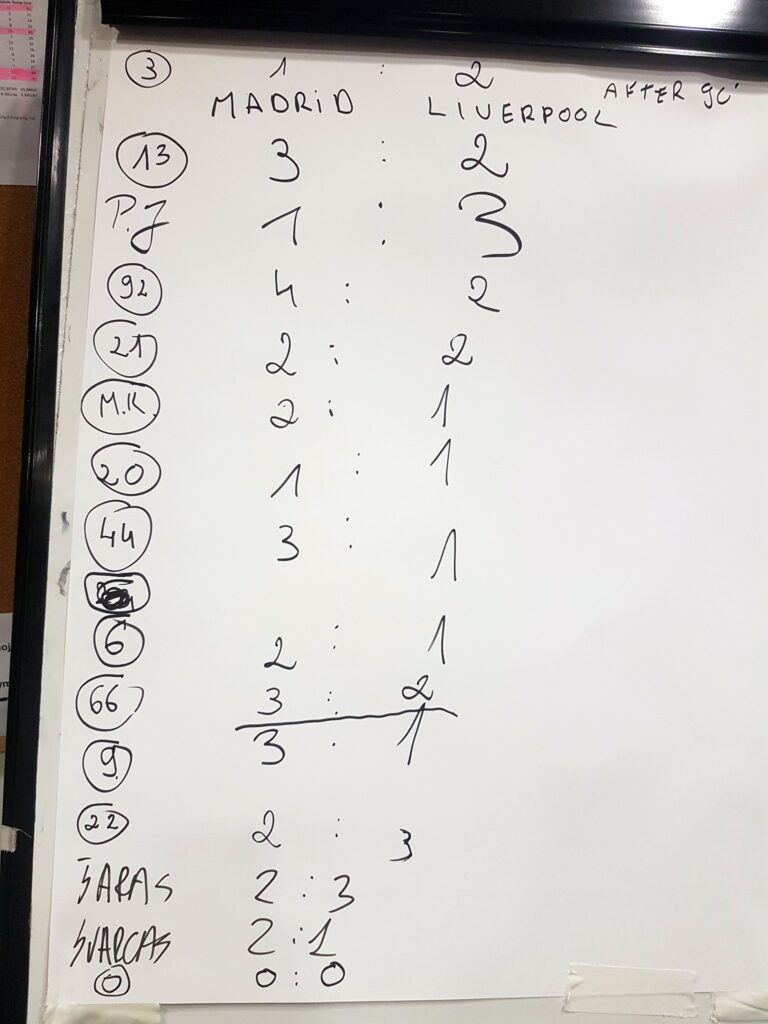 3 1 : 2
MADRID LIVERPOOL AFTER 90'
13 3 : 2
P.J 1 : 3
92 4 : 2
21 2 : 2
M.K. 2 : 1
20 1 : 1
44 3 : 1
6 2 : 1
66 3 : 2
9 3 : 1
22 2 : 3
ŠARAS 2 : 3
ŠVARCAS 2 : 1
0 0 : 0